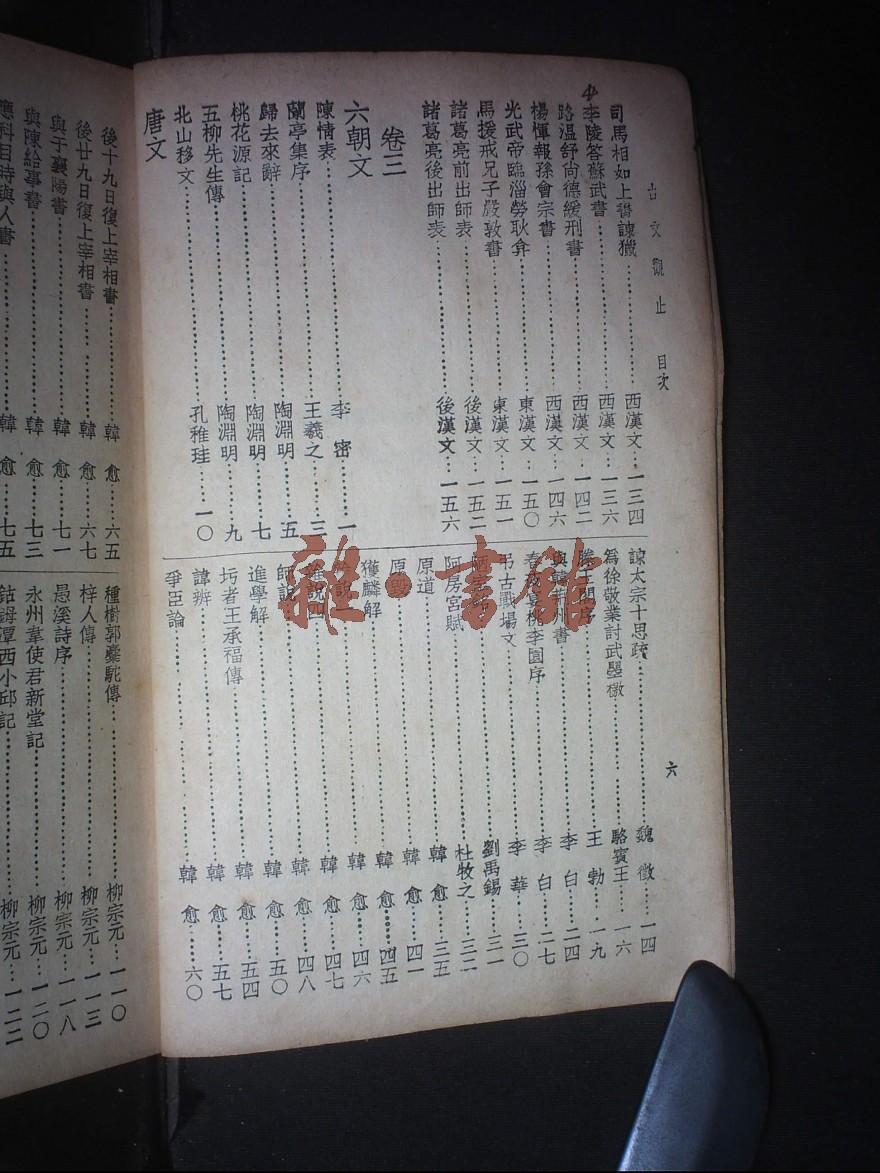 古文觀止 目次
六
司馬相如上書諫獵 西漢文 一三四
李陵答蘇武書 西漢文 一三六
路溫舒尚德緩刑書 西漢文 一四二
楊惲報孫會宗書 西漢文 一四六
光武帝臨淄勞耿弇 東漢文 一五〇
馬援戒兄子嚴敦書 東漢文 一五一
諸葛亮前出師表 後漢文 一五二
諸葛亮後出師表 後漢文 一五六
卷三
六朝文
陳情表 李密 一
蘭亭集序 王羲之 三
歸去來辭 陶淵明 五
桃花源記 陶淵明 七
五柳先生傳 陶淵明 九
北山移文 孔稚珪 一〇
唐文
諫太宗十思疏 魏徵 一四
爲徐敬業討武曌檄 駱賓王 一六
滕王閣序 王勃 一九
與韓荊州書 李白 二四
春夜宴桃李園序 李白 二七
弔古戰場文 李華 三〇
陋室銘 劉禹錫 三一
阿房宮賦 杜牧之 三二
原道 韓愈 三五
原毀 韓愈 四一
獲麟解 韓愈 四五
雜說一 韓愈 四六
雜說四 韓愈 四七
師說 韓愈 四八
進學解 韓愈 五〇
圬者王承福傳 韓愈 五四
諱辨 韓愈 五七
爭臣論 韓愈 六〇
後十九日復上宰相書 韓愈 六五
後廿九日復上宰相書 韓愈 六七
與于襄陽書 韓愈 七一
與陳給事書 韓愈 七三
應科目時與人書 韓愈 七五
種樹郭橐駝傳 柳宗元 一一〇
梓人傳 柳宗元 一一三
愚溪詩序 柳宗元 一一八
永州韋使君新堂記 柳宗元 一二〇
鈷鉧潭西小邱記 柳宗元 一二二
雜·書館